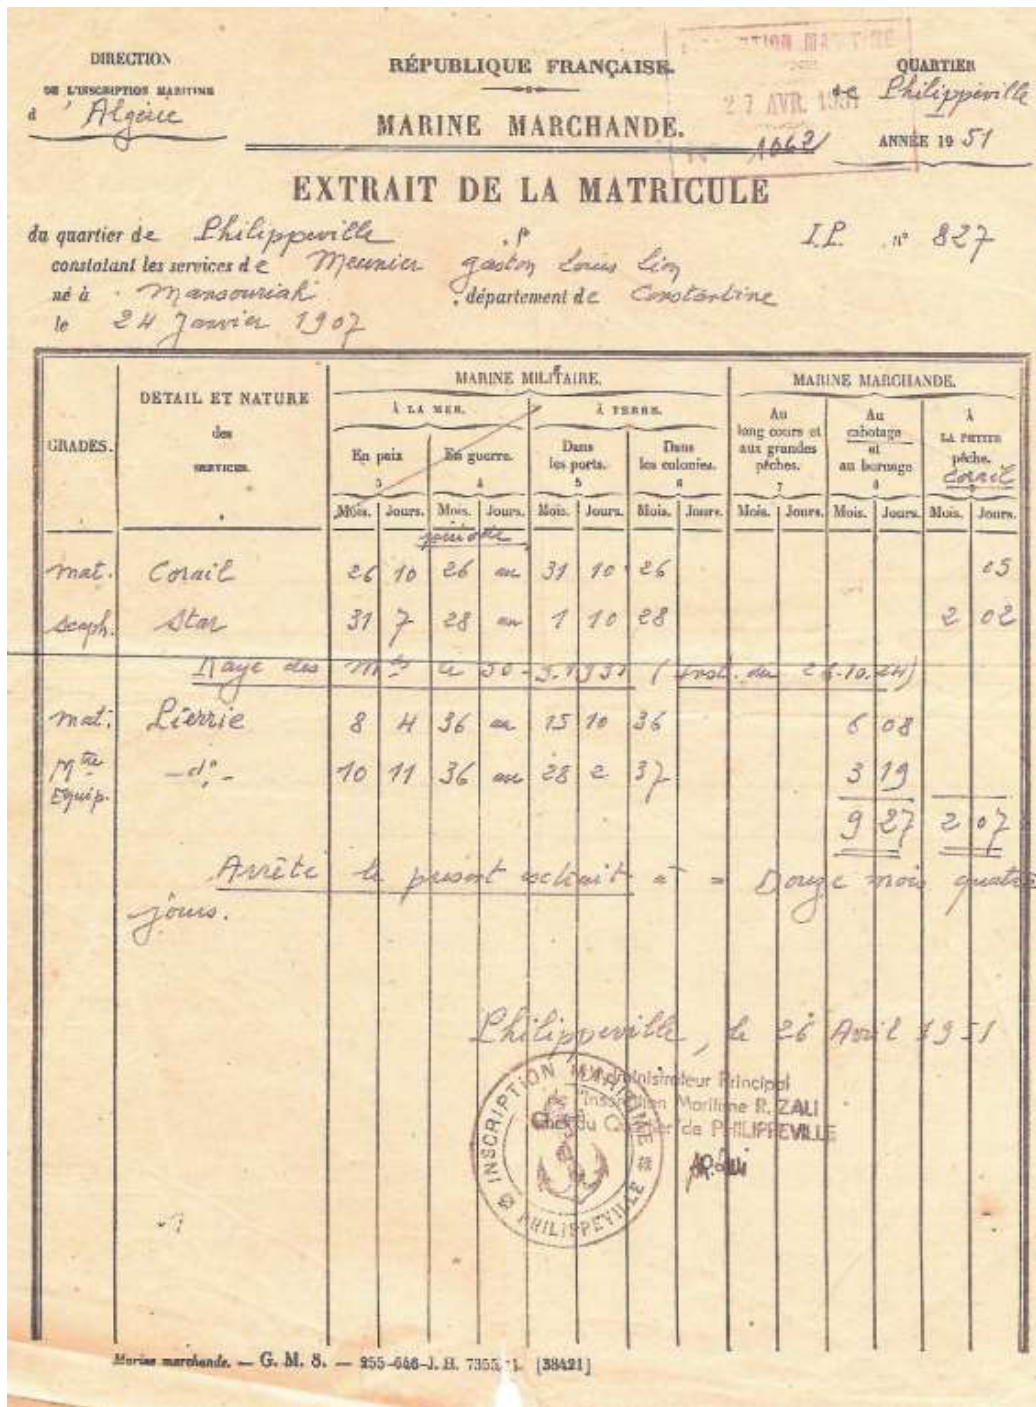 DIRECTION
DE L'INSCRIPTION MARITIME
d' Algérie
RÉPUBLIQUE FRANÇAISE.
MARINE MARCHANDE.
27 AVR. 1951
1062
QUARTIER
de Philippeville
ANNÉE 1951
EXTRAIT DE LA MATRICULE
du quartier de Philippeville I.P. n° 827
constatant les services de Meunier gaston Louis Léon
né à Mansouriah département de Constantine
le 24 Janvier 1907
GRADES.
DETAIL ET NATURE
des
SERVICES.
MARINE MILITAIRE.
MARINE MARCHANDE.
À LA MER.
À TERRE.
En paix
3
En guerre.
4
Dans
les ports.
5
Dans
les colonies.
6
Au
long cours et
aux grandes
pêches.
7
Au
cabotage
et
au bornage
8
À
LA PETITE
pêche.
Corail
Mois. Jours. Mois. Jours. Mois. Jours. Mois. Jours. Mois. Jours. Mois. Jours. Mois. Jours.
période
mat. Corail 26 10 26 au 31 10 26 05
scaph. Star 31 7 28 au 1 10 28 2 02
Rayé des le 30
mat. Pierrie 8 4 36 au 15 10 36 6 08
Mtre Equip. -d°- 10 11 36 au 28 2 37 3 19
9 27 2 07
Arrêté le présent extrait à = Douze mois quatre
jours.
Philippeville, le 26 Avril 1951
Administrateur Principal
de l'Inscription Maritime R. ZALI
Chef du Quartier de PHILIPPEVILLE
INSCRIPTION MARITIME
PHILIPPEVILLE
Marine marchande. — G. M. 8. — 255-646-J. H. 7355 [38421]